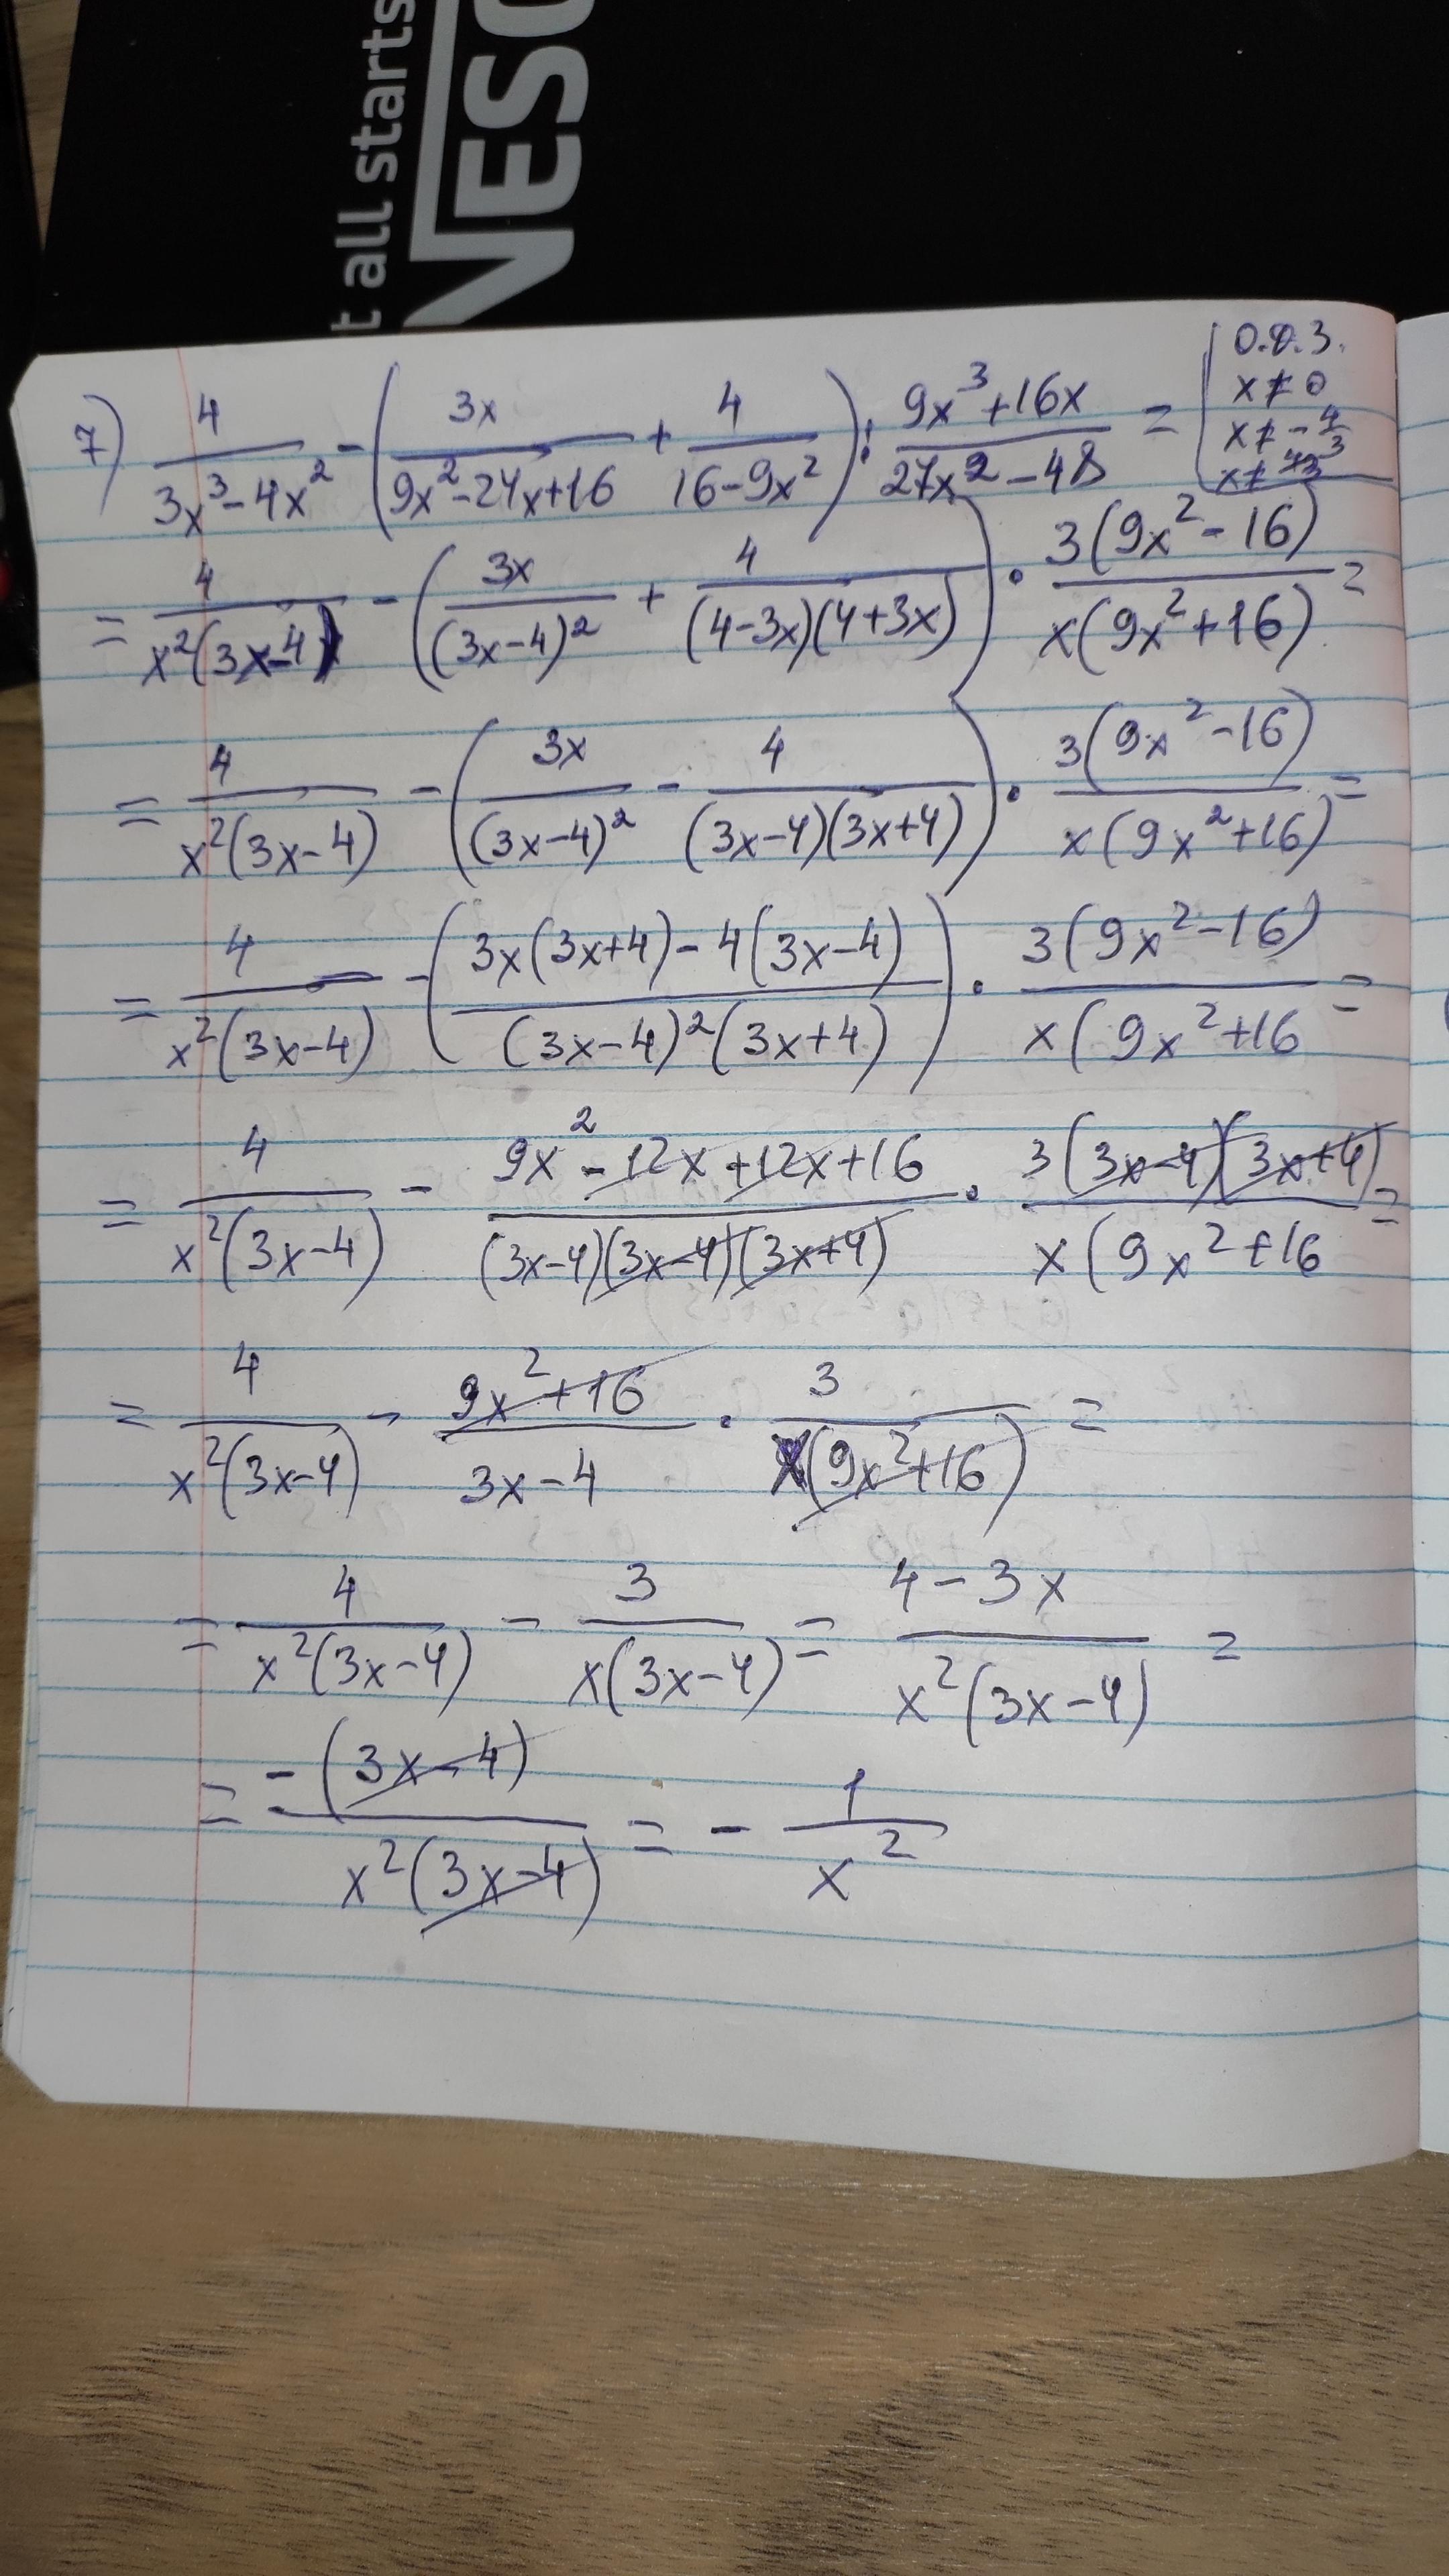 t all starts
NESC
7) 4/(3x³-4x²) - (3x/(9x²-24x+16) + 4/(16-9x²)) : (9x³+16x)/(27x²-48) =
О.Д.З.
x ≠ 0
x ≠ -4/3
x ≠ 4/3
= 4/(x²(3x-4)) - (3x/(3x-4)² + 4/((4-3x)(4+3x))) · 3(9x²-16)/(x(9x²+16)) =
= 4/(x²(3x-4)) - (3x/(3x-4)² - 4/((3x-4)(3x+4))) · 3(9x²-16)/(x(9x²+16)) =
= 4/(x²(3x-4)) - ((3x(3x+4)-4(3x-4))/((3x-4)²(3x+4))) · 3(9x²-16)/(x(9x²+16 =
= 4/(x²(3x-4)) - (9x²-12x+12x+16)/((3x-4)(3x-4)(3x+4)) · 3(3x-4)(3x+4)/(x(9x²+16 =
= 4/(x²(3x-4)) - (9x²+16)/(3x-4) · 3/(x(9x²+16)) =
= 4/(x²(3x-4)) - 3/(x(3x-4)) = (4-3x)/(x²(3x-4)) =
= -(3x-4)/(x²(3x-4)) = - 1/x²